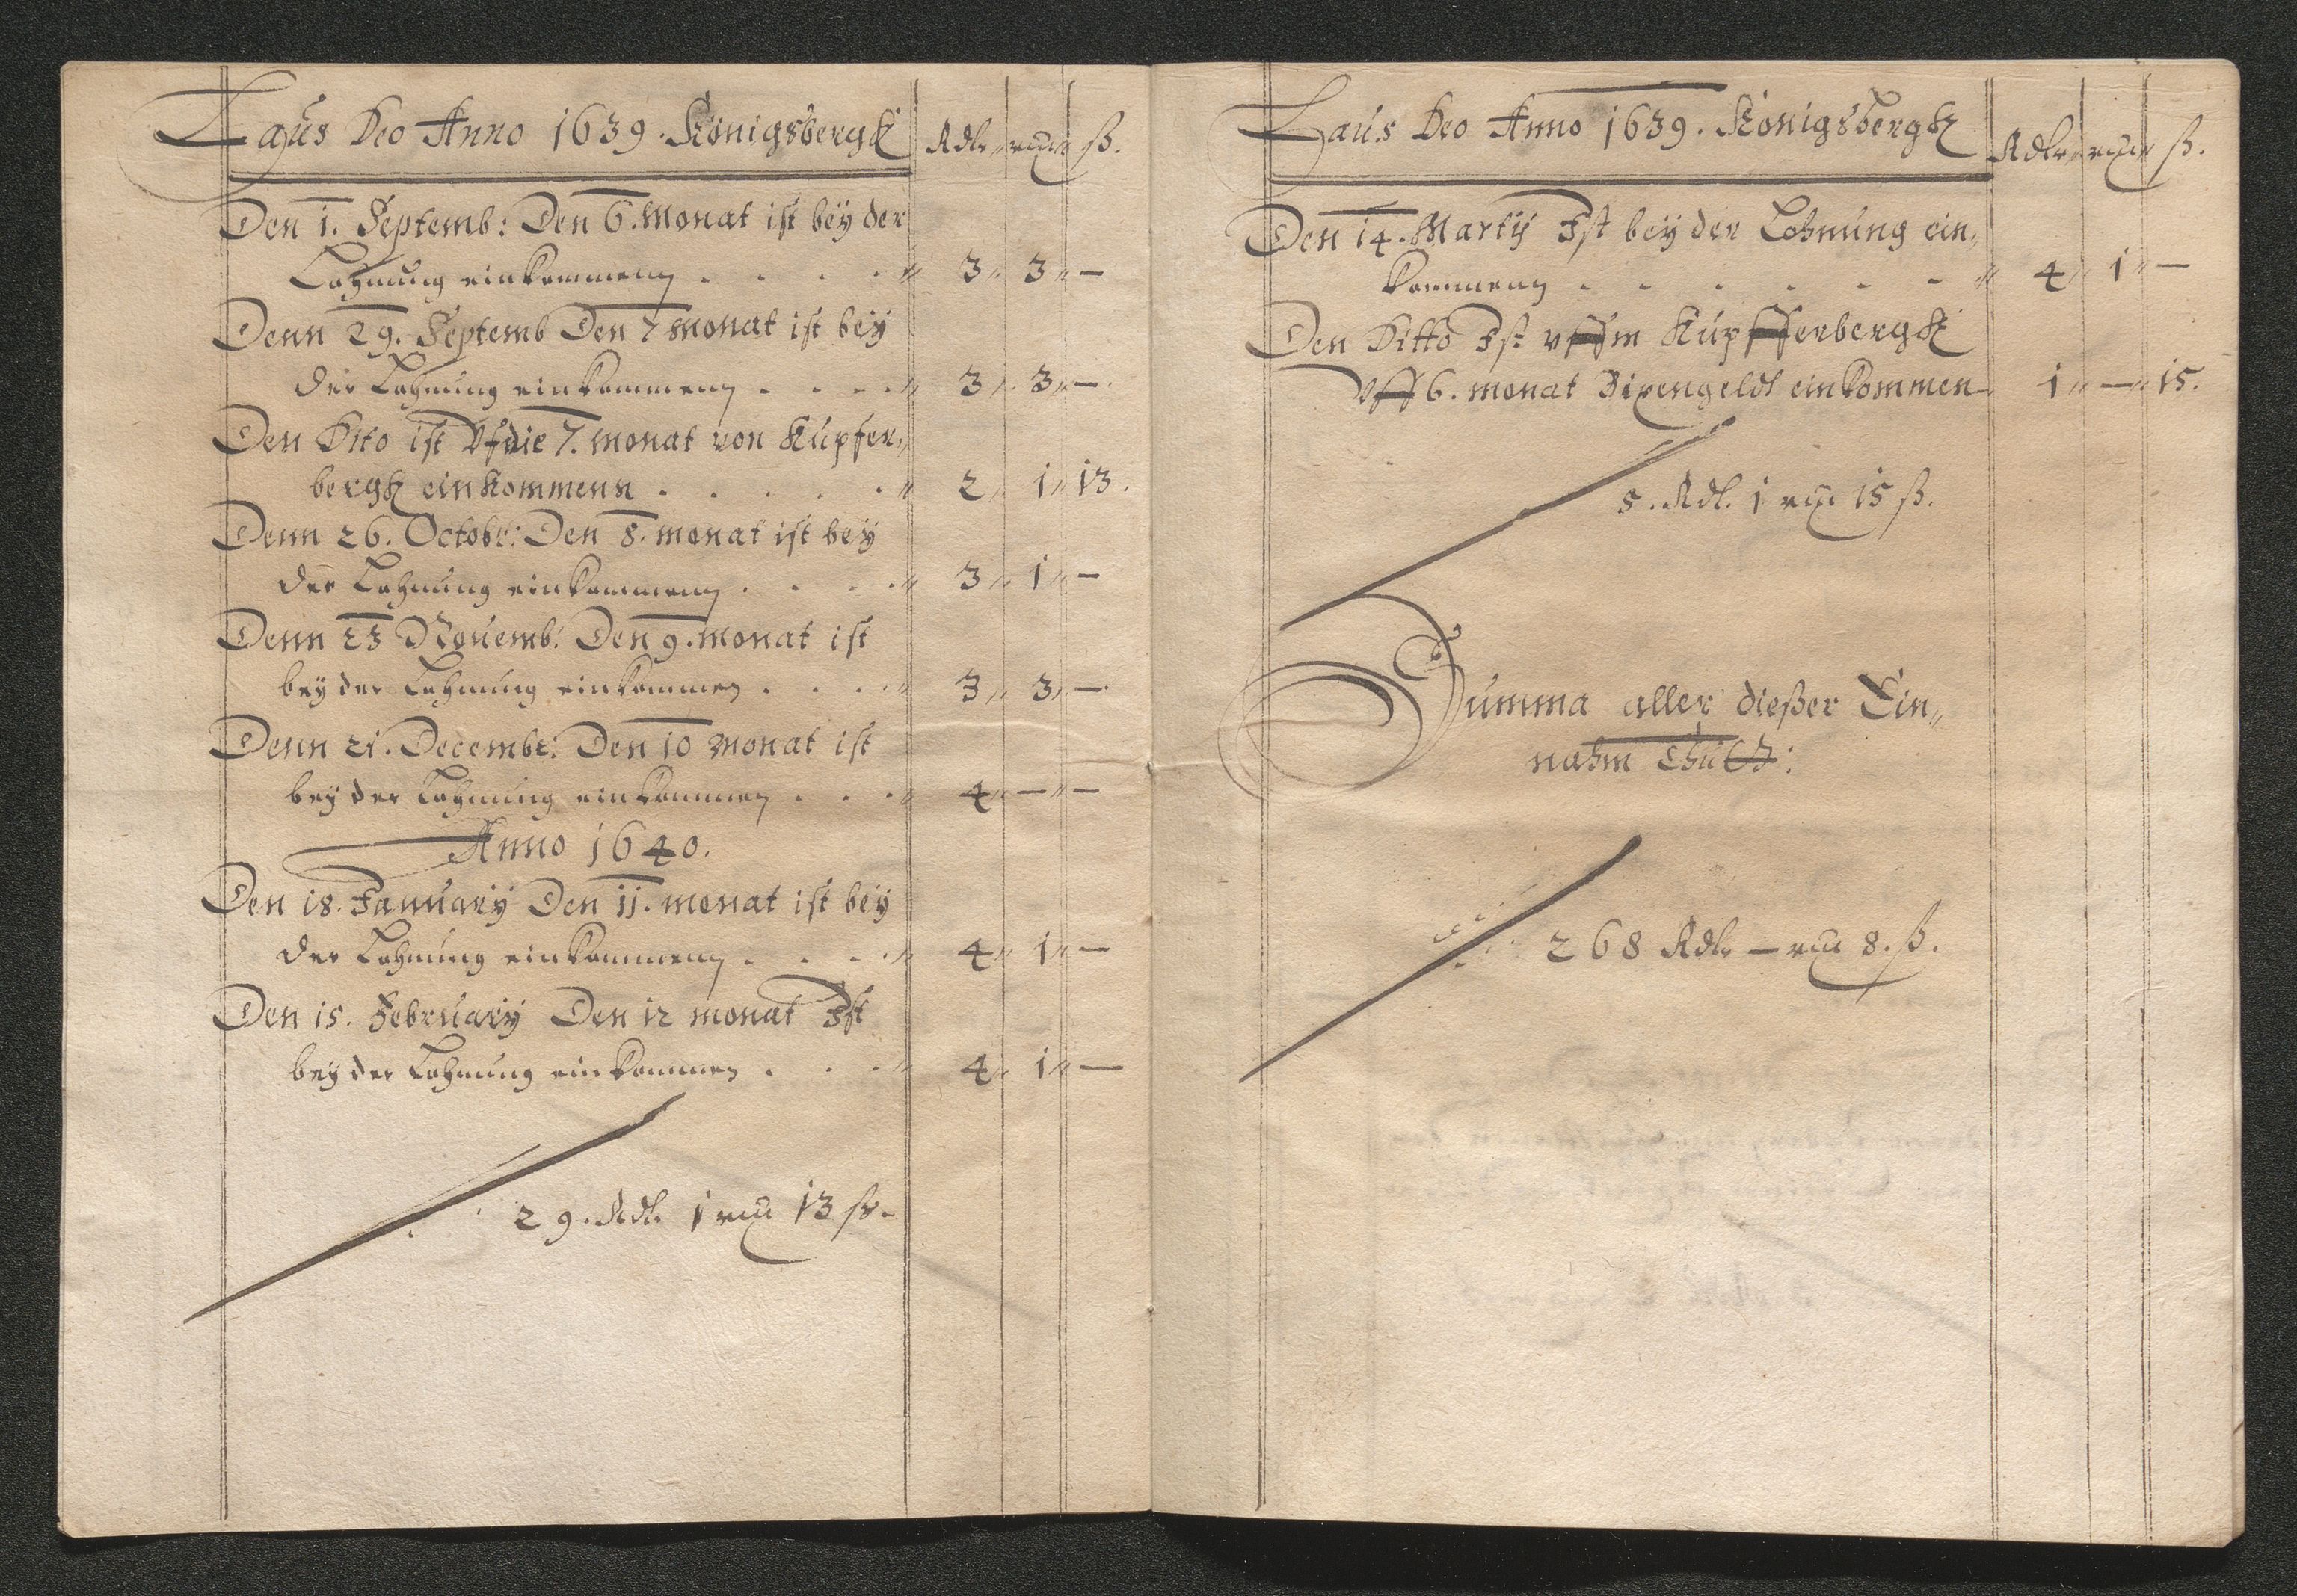 Laus Deo Anno 1639. Königsbergk Rdlr ß.
Den 1. Septemb: Den 6. Monat ist beÿ der
Lohnung einkommenn . . . . 3 3 —
Denn 29. Septemb Den 7 Monat ist beÿ
der Lohnung einkommenn . . . . 3 3 —
Den Dito ist Vf die 7. Monat von Kupfer„
bergk einkommenn . . . . . 2 1 13.
Denn 26. Octobr: Den 8. monat ist beÿ
der Lohnung einkommenn . . . . 3 1 —
Denn 23 Nouemb: Den 9. monat ist
beÿ der Lohnung einkommen . . . . 3 3 —
Denn 21. Decembr: Den 10 Monat ist
beÿ der Lohnung einkommen . . . 4 — —
Anno 1640.
Den 18. Januarÿ Den 11. monat ist beÿ
der Lohnung einkommenn . . . . 4 1 —
Den 15. Februarÿ Den 12 monat Ist
beÿ der Lohnung einkommen . . . 4 1 —
29. Rdl. 1 13 ß.
Laus Deo Anno 1639. Königsbergk Rdlr ß.
Den 14. Martÿ Ist beÿ der Lohnung ein„
kommenn . . . . . . 4 1 —
Den Ditto Ist vffm Kupfferbergk
Vff 6. monat Bixengeldt einkommen 1 — 15.
5. Rdl. 1 15 ß.
Summa aller dießer Ein„
nahm Thutt:
268 Rdlr — 8. ß.